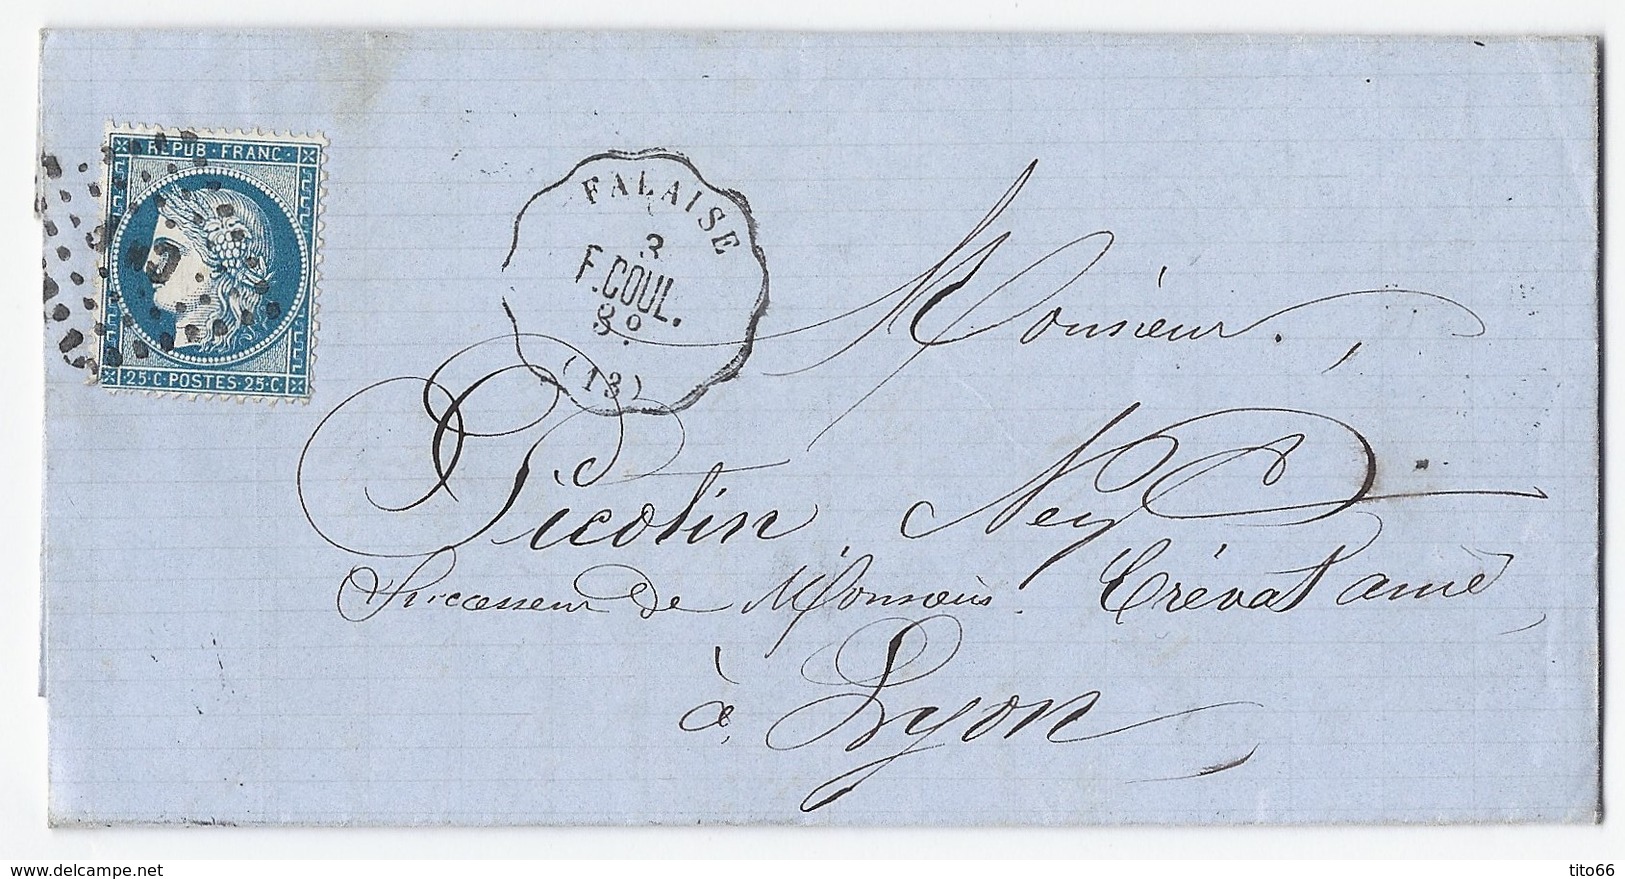 REPUB · FRANC ·
25 · C POSTES · 25 · C
FALAISE
3
F.COUL.
3º
(13)
Monsieur
Picolin Ney
Successeur de Monsieur Tréval ainé
à Lyon
tito66